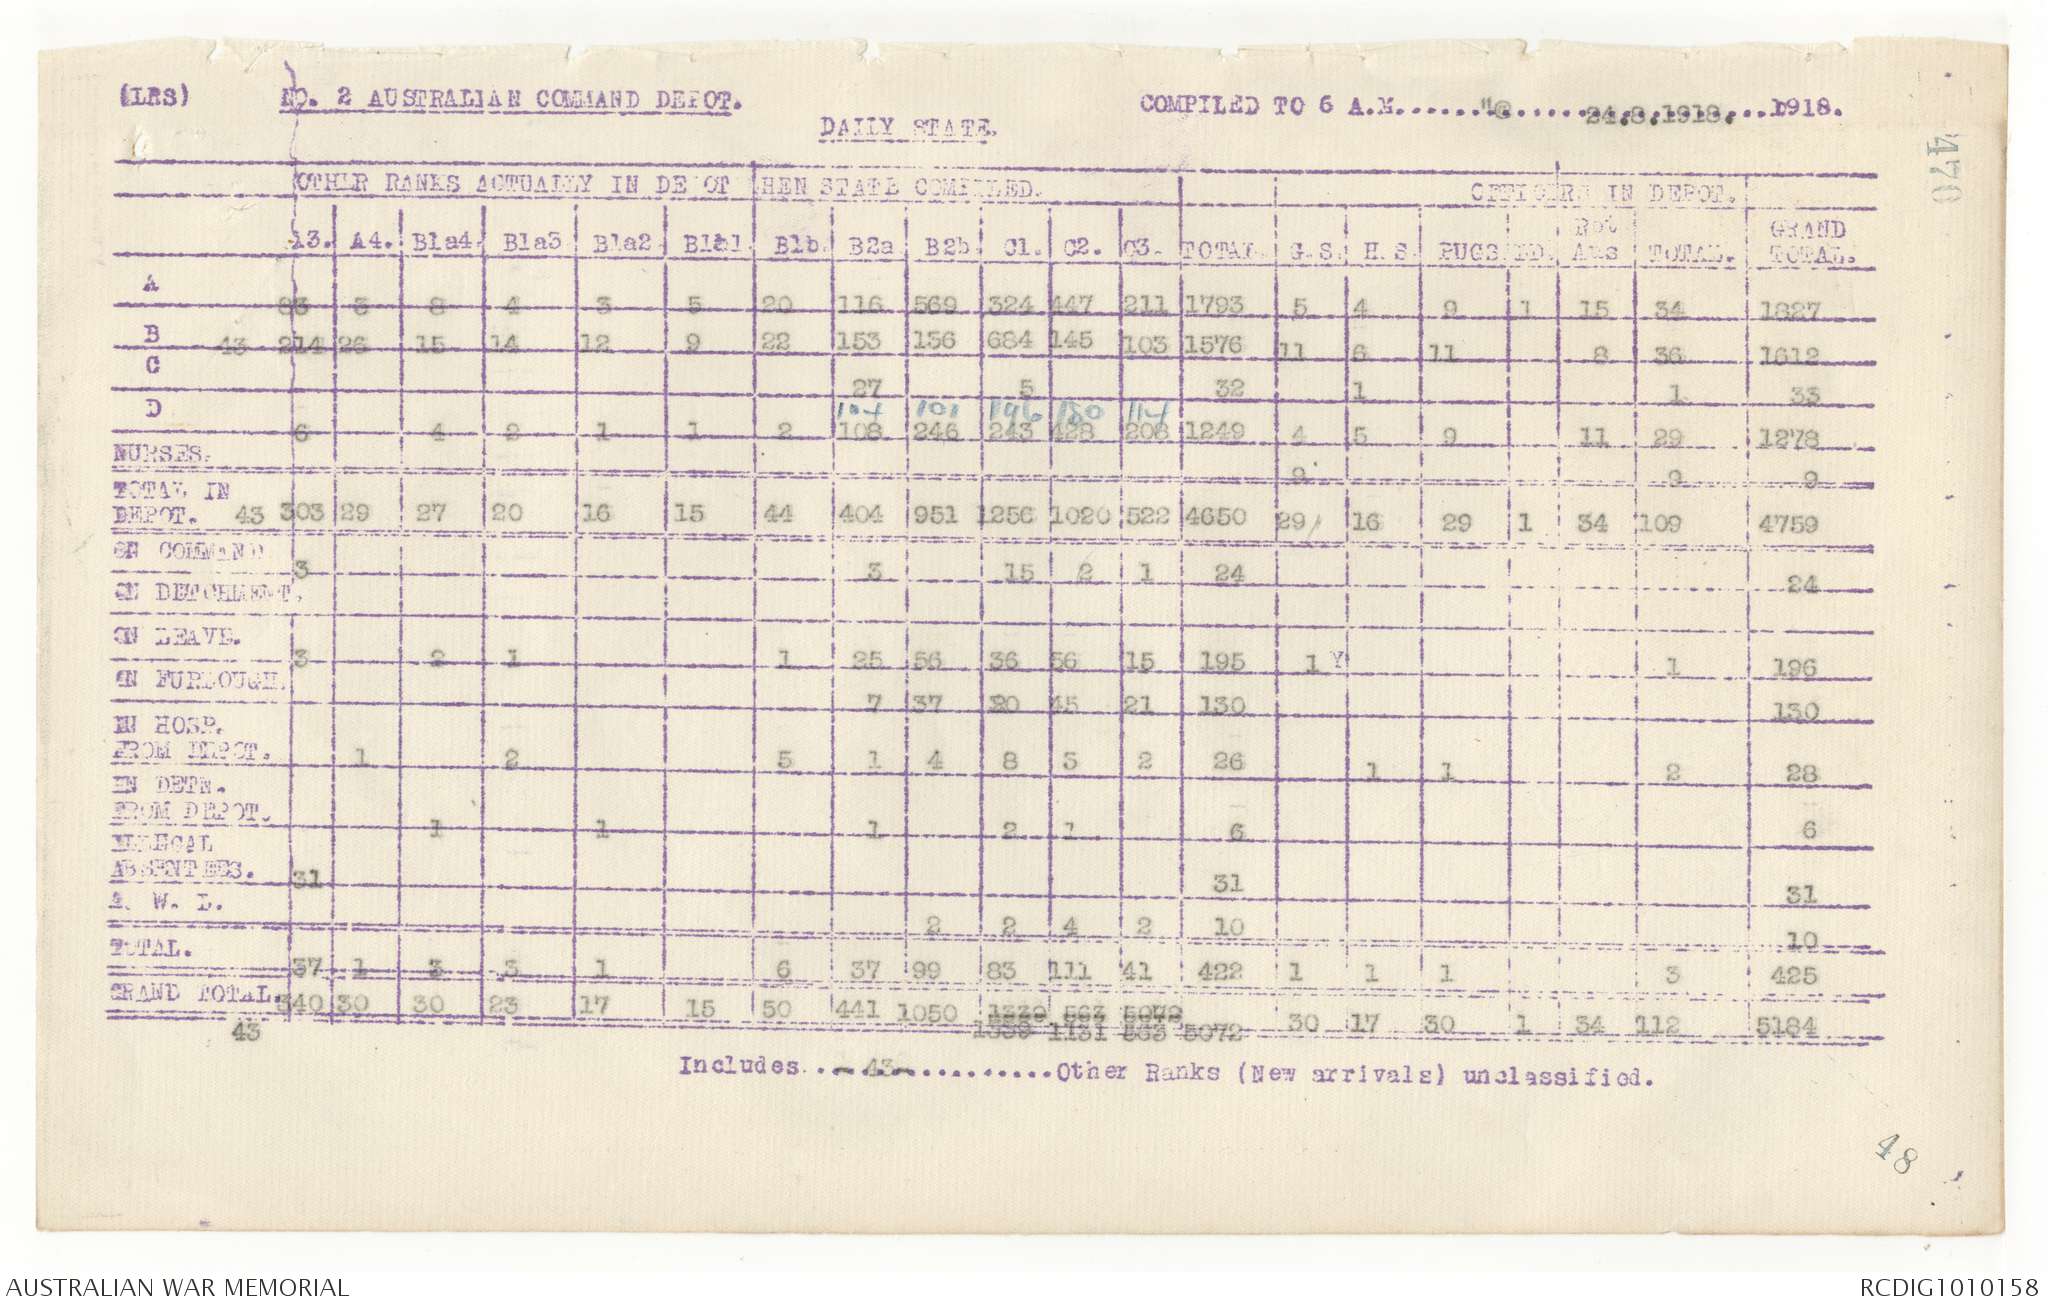 (LRS) NO. 2 AUSTRALIAN COMMAND DEPOT. COMPILED TO 6 A.M. 24.8.1918. 1918.
DAILY STATE.
476
OTHER RANKS ACTUALLY IN DEPOT HEN STATE COMPILED. OFFICERS IN DEPOT.
A3. A4. B1a4. B1a3 B1a2 B1b. B2a B2b. C1. C2. C3. TOTAL. G.S. H.S. PUGS TD. Rot Aus TOTAL. GRAND TOTAL.
A 83 3 8 4 3 5 20 116 569 324 447 211 1793 5 4 9 1 15 34 1827
B 43 214 26 15 14 12 9 22 153 136 684 145 103 1576 11 6 11 8 36 1612
C 27 5 32 1 1 33
101 196 180 114
D 6 4 2 1 1 2 108 246 243 428 208 1249 4 5 9 11 29 1278
NURSES. 9 9 9
TOTAL IN
DEPOT. 43 303 29 27 20 16 15 44 404 951 1256 1020 522 4650 29 16 29 1 34 109 4759
ON COMMAND 3 3 15 2 1 24 24
ON DETCHMENT.
ON LEAVE. 3 2 1 1 25 56 36 56 15 195 1 Y 1 196
ON FURLOUGH. 7 37 20 45 21 130 130
IN HOSP.
FROM DEPOT. 1 2 5 1 4 8 3 2 26 1 1 2 28
IN DETN.
FROM DEPOT. 1 1 1 2 1 6 6
ILLEGAL
ABSENTEES. 31 31 31
A. W. L. 2 2 4 2 10 10
TOTAL. 37 1 3 3 1 6 37 99 83 111 41 422 1 1 1 3 425
GRAND TOTAL. 340 30 30 23 17 15 50 441 1050 1339 563 5072
43 1339 1131 563 5072 30 17 30 1 34 112 5184
Includes...- 43-..............Other Ranks (New arrivals) unclassified.
48
AUSTRALIAN WAR MEMORIAL RCDIG1010158